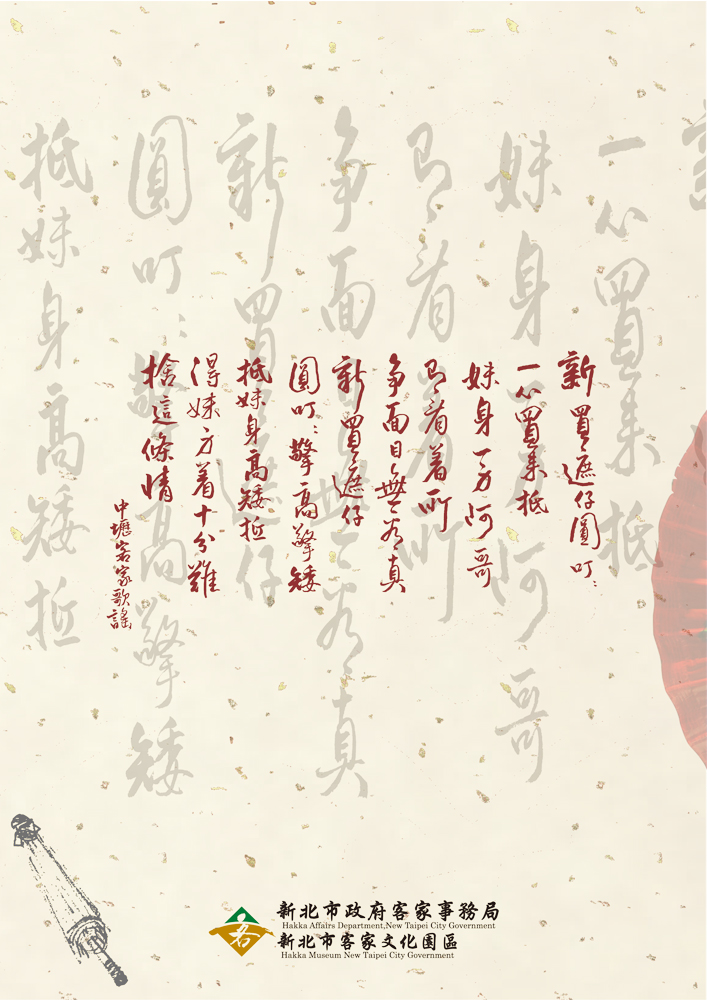 新買遮仔圓叮:
一心買來抵
妹身阿哥
看着所
爭面日無真
新買遮仔
圓叮:擎高擎矮
抵妹身高矮抵
得妹方着十分難
捨這條情
中壢客家歌謠
一心買來抵
妹身阿哥
新買遮仔
圓叮:擎高擎矮
抵妹身高矮抵
客
新北市政府客家事務局
Hakka Affairs Department,New Taipei City Government
新北市客家文化園區
Hakka Museum New Taipei City Government